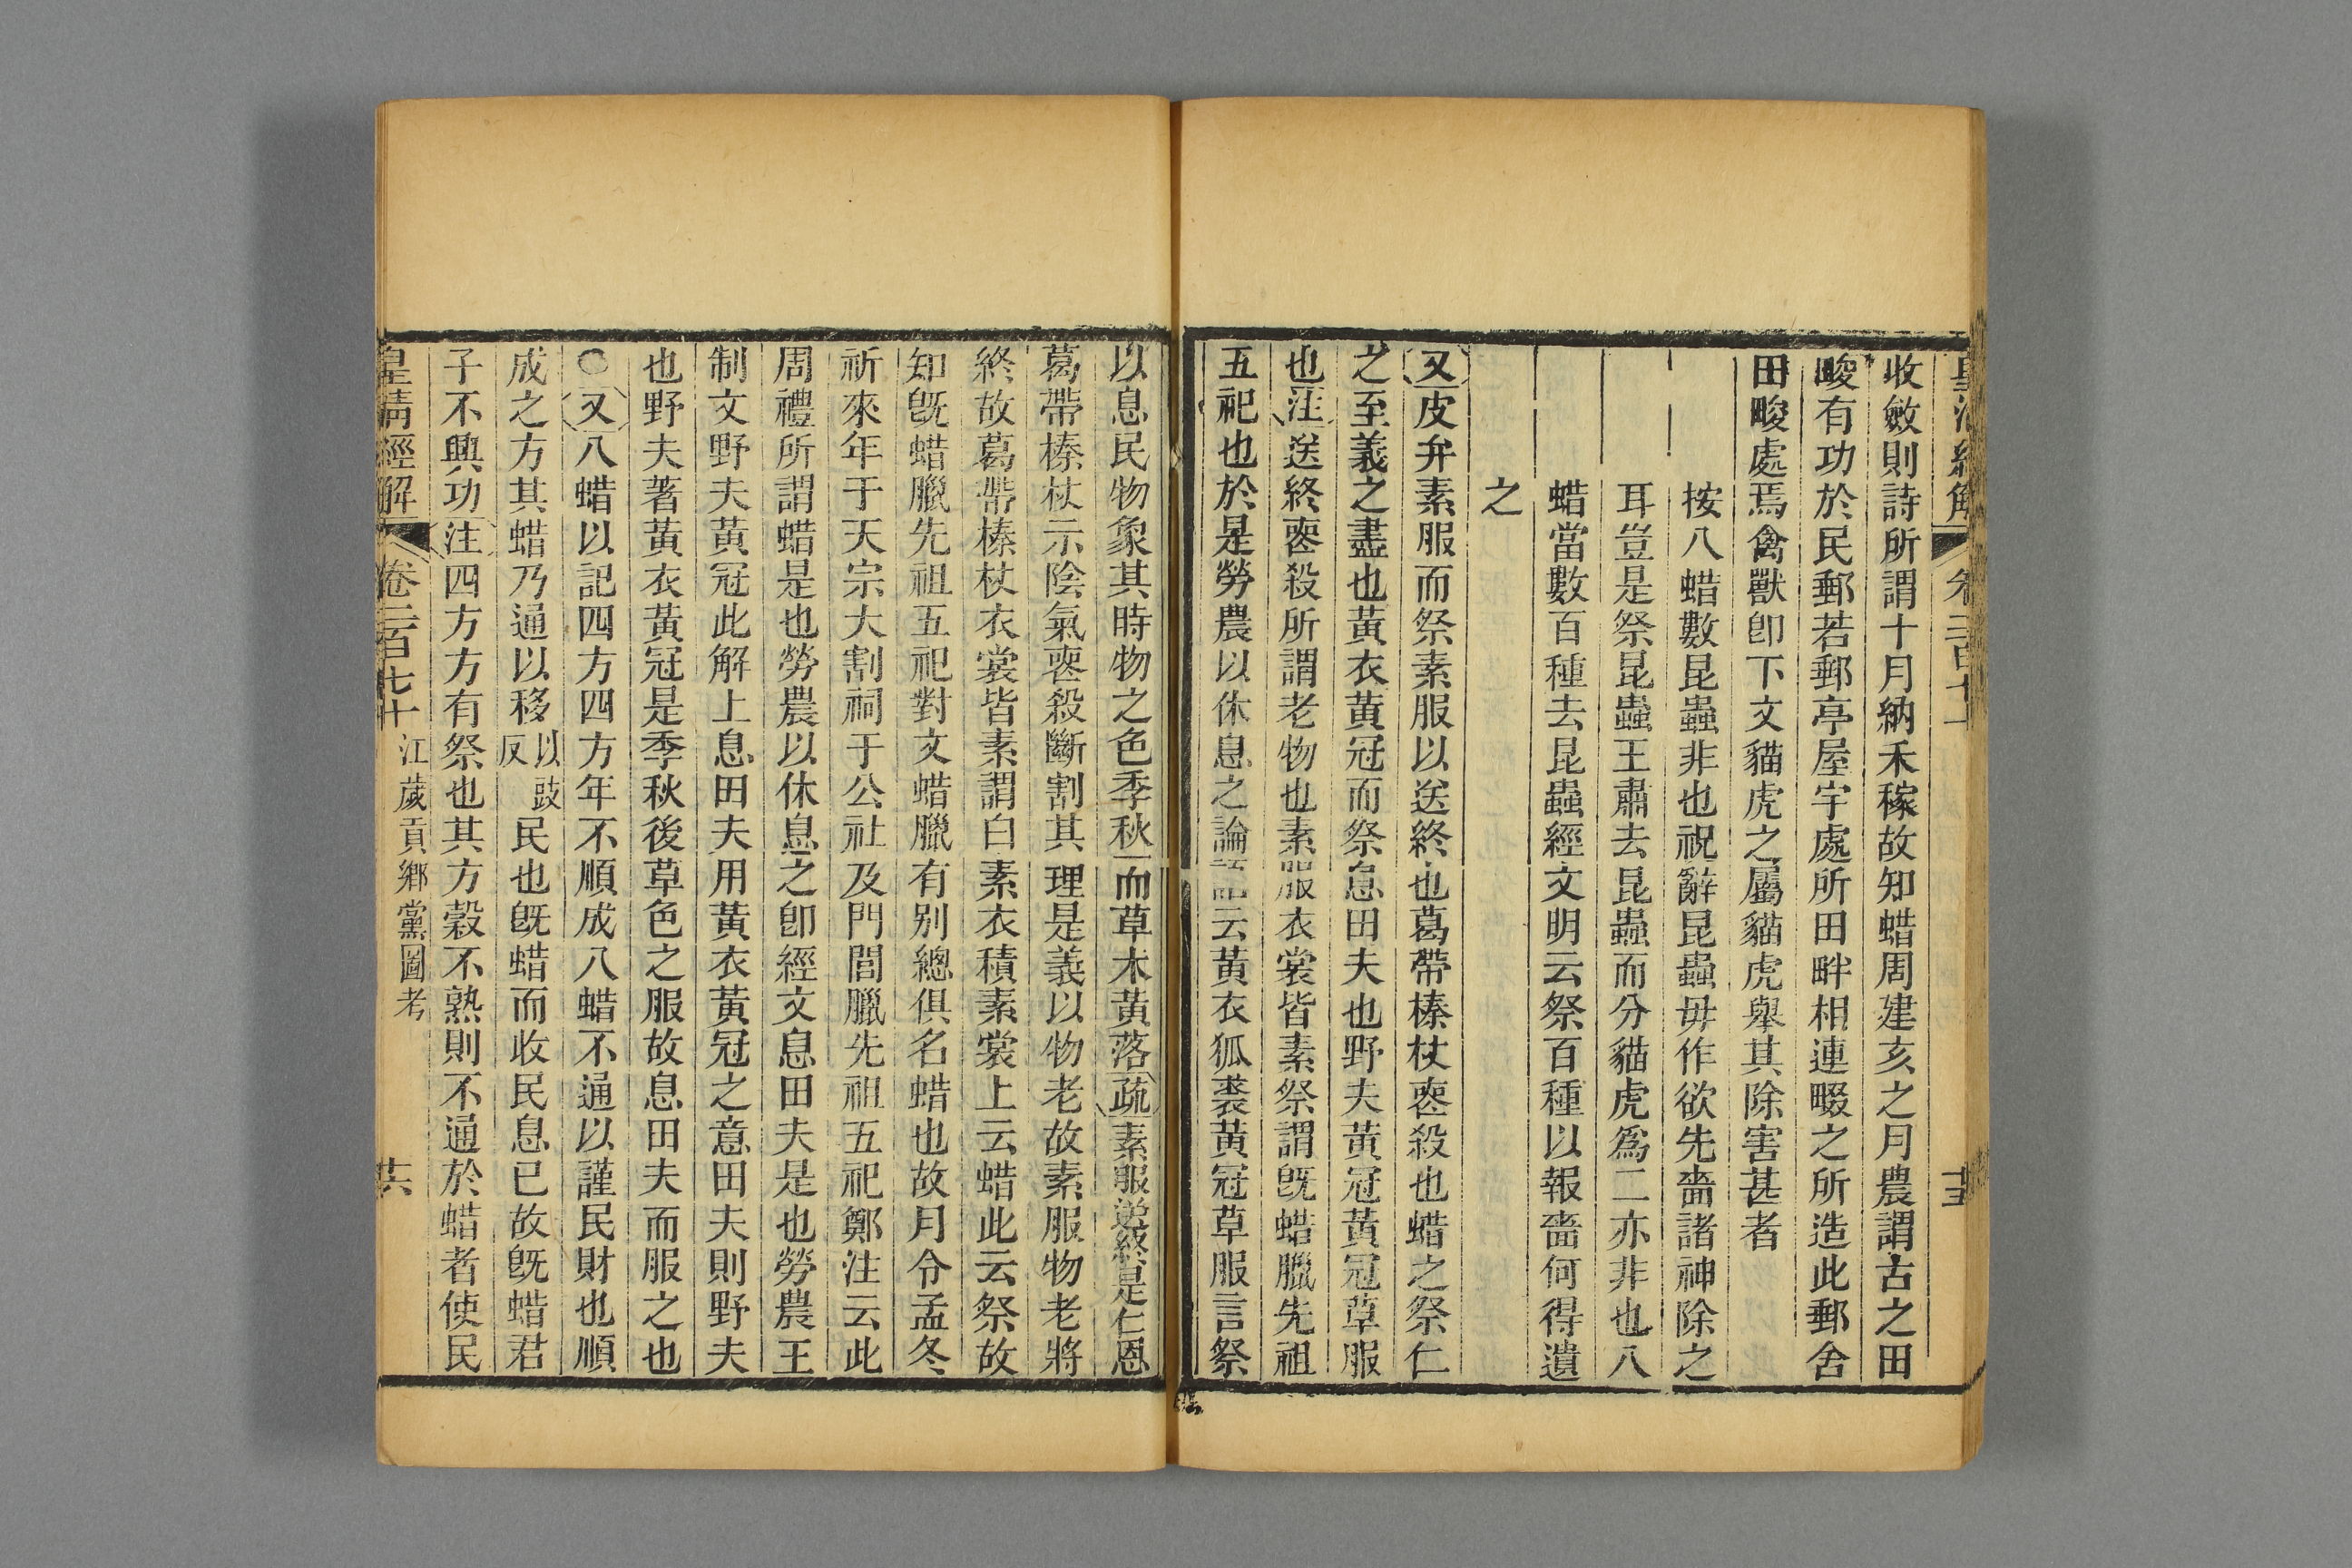 收斂則詩所謂十月納禾稼故知蜡周建亥之月農謂古之田
畯有功於民郵若郵亭屋宇處所田畔相連畷之所造此郵舍
田畯處焉禽獸卽下文貓虎之屬貓虎舉其除害甚者
按八蜡數昆蟲非也祝辭昆蟲毋作欲先嗇諸神除之
耳豈是祭昆蟲王肅去昆蟲而分貓虎爲二亦非也八
蜡當數百種去昆蟲經文明云祭百種以報嗇何得遺
之
又皮弁素服而祭素服以送終也葛帶榛杖喪殺也蜡之祭仁
之至義之盡也黃衣黃冠而祭息田夫也野夫黃冠黃冠草服
也注送終喪殺所謂老物也素服衣裳皆素祭謂旣蜡臘先祖
五祀也於是勞農以休息之論語云黃衣狐裘黃冠草服言祭
以息民物象其時物之色季秋而草木黃落疏素服送終是仁恩
葛帶榛杖示陰氣喪殺斷割其理是義以物老故素服物老將
終故葛帶榛杖衣裳皆素謂白素衣積素裳上云蜡此云祭故
知旣蜡臘先祖五祀對文蜡臘有别總俱名蜡也故月令孟冬
祈來年于天宗大割祠于公社及門閭臘先祖五祀鄭注云此
周禮所謂蜡是也勞農以休息之卽經文息田夫是也勞農王
制文野夫黃冠此解上息田夫用黃衣黃冠之意田夫則野夫
也野夫著黃衣黃冠是季秋後草色之服故息田夫而服之也
●又八蜡以記四方四方年不順成八蜡不通以謹民財也順
成之方其蜡乃通以移以豉反民也旣蜡而收民息已故旣蜡君
子不興功注四方方有祭也其方穀不熟則不通於蜡者使民
皇清經解 卷二百七十 江歲貢鄉黨圖考 十六